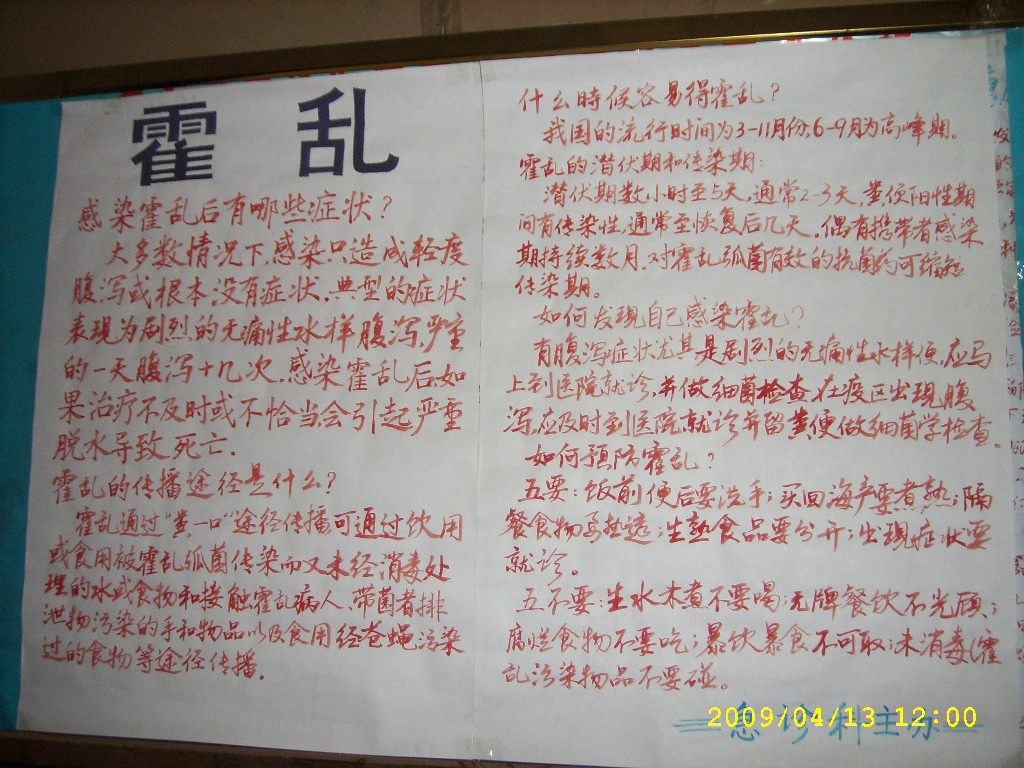 霍乱
感染霍乱后有哪些症状？
大多数情况下,感染只造成轻度
腹泻或根本没有症状.典型的症状
表现为剧烈的无痛性水样腹泻,严重
的一天腹泻十几次.感染霍乱后,如
果治疗不及时或不恰当,会引起严重
脱水导致死亡.
霍乱的传播途径是什么?
霍乱通过"粪一口"途径传播可通过饮用
或食用被霍乱弧菌传染而又未经消毒处
理的水或食物和接触霍乱病人、带菌者排
泄物污染的手和物品以及食用经苍蝇污染
过的食物等途径传播.
什么時候容易得霍乱?
我国的流行时间为3-11月份;6-9月为高峰期。
霍乱的潜伏期和传染期:
潜伏期数小时至5天,通常2-3天,粪便阳性期
间有传染性,通常至恢复后几天。偶有携带者感染
期持续数月.对霍乱弧菌有效的抗菌药可缩短
传染期。
如何发現自己感染霍乱?
有腹泻症状尤其是剧烈的无痛性水样便,应马
上到医院就诊,并做细菌检查.在疫区出現腹
泻,应及时到医院就诊并留粪便做细菌学检查.
如何预防霍乱?
五要:饭前便后要洗手;买回海产要煮熟;隔
餐食物要热透;生熟食品要分开;出現症状要
就诊。
五不要:生水未煮不要喝;无牌餐饮不光顾;
腐烂食物不要吃;暴饮暴食不可取;未消毒(霍
乱污染物品不要碰。
急诊科主办
2009/04/13 12:00